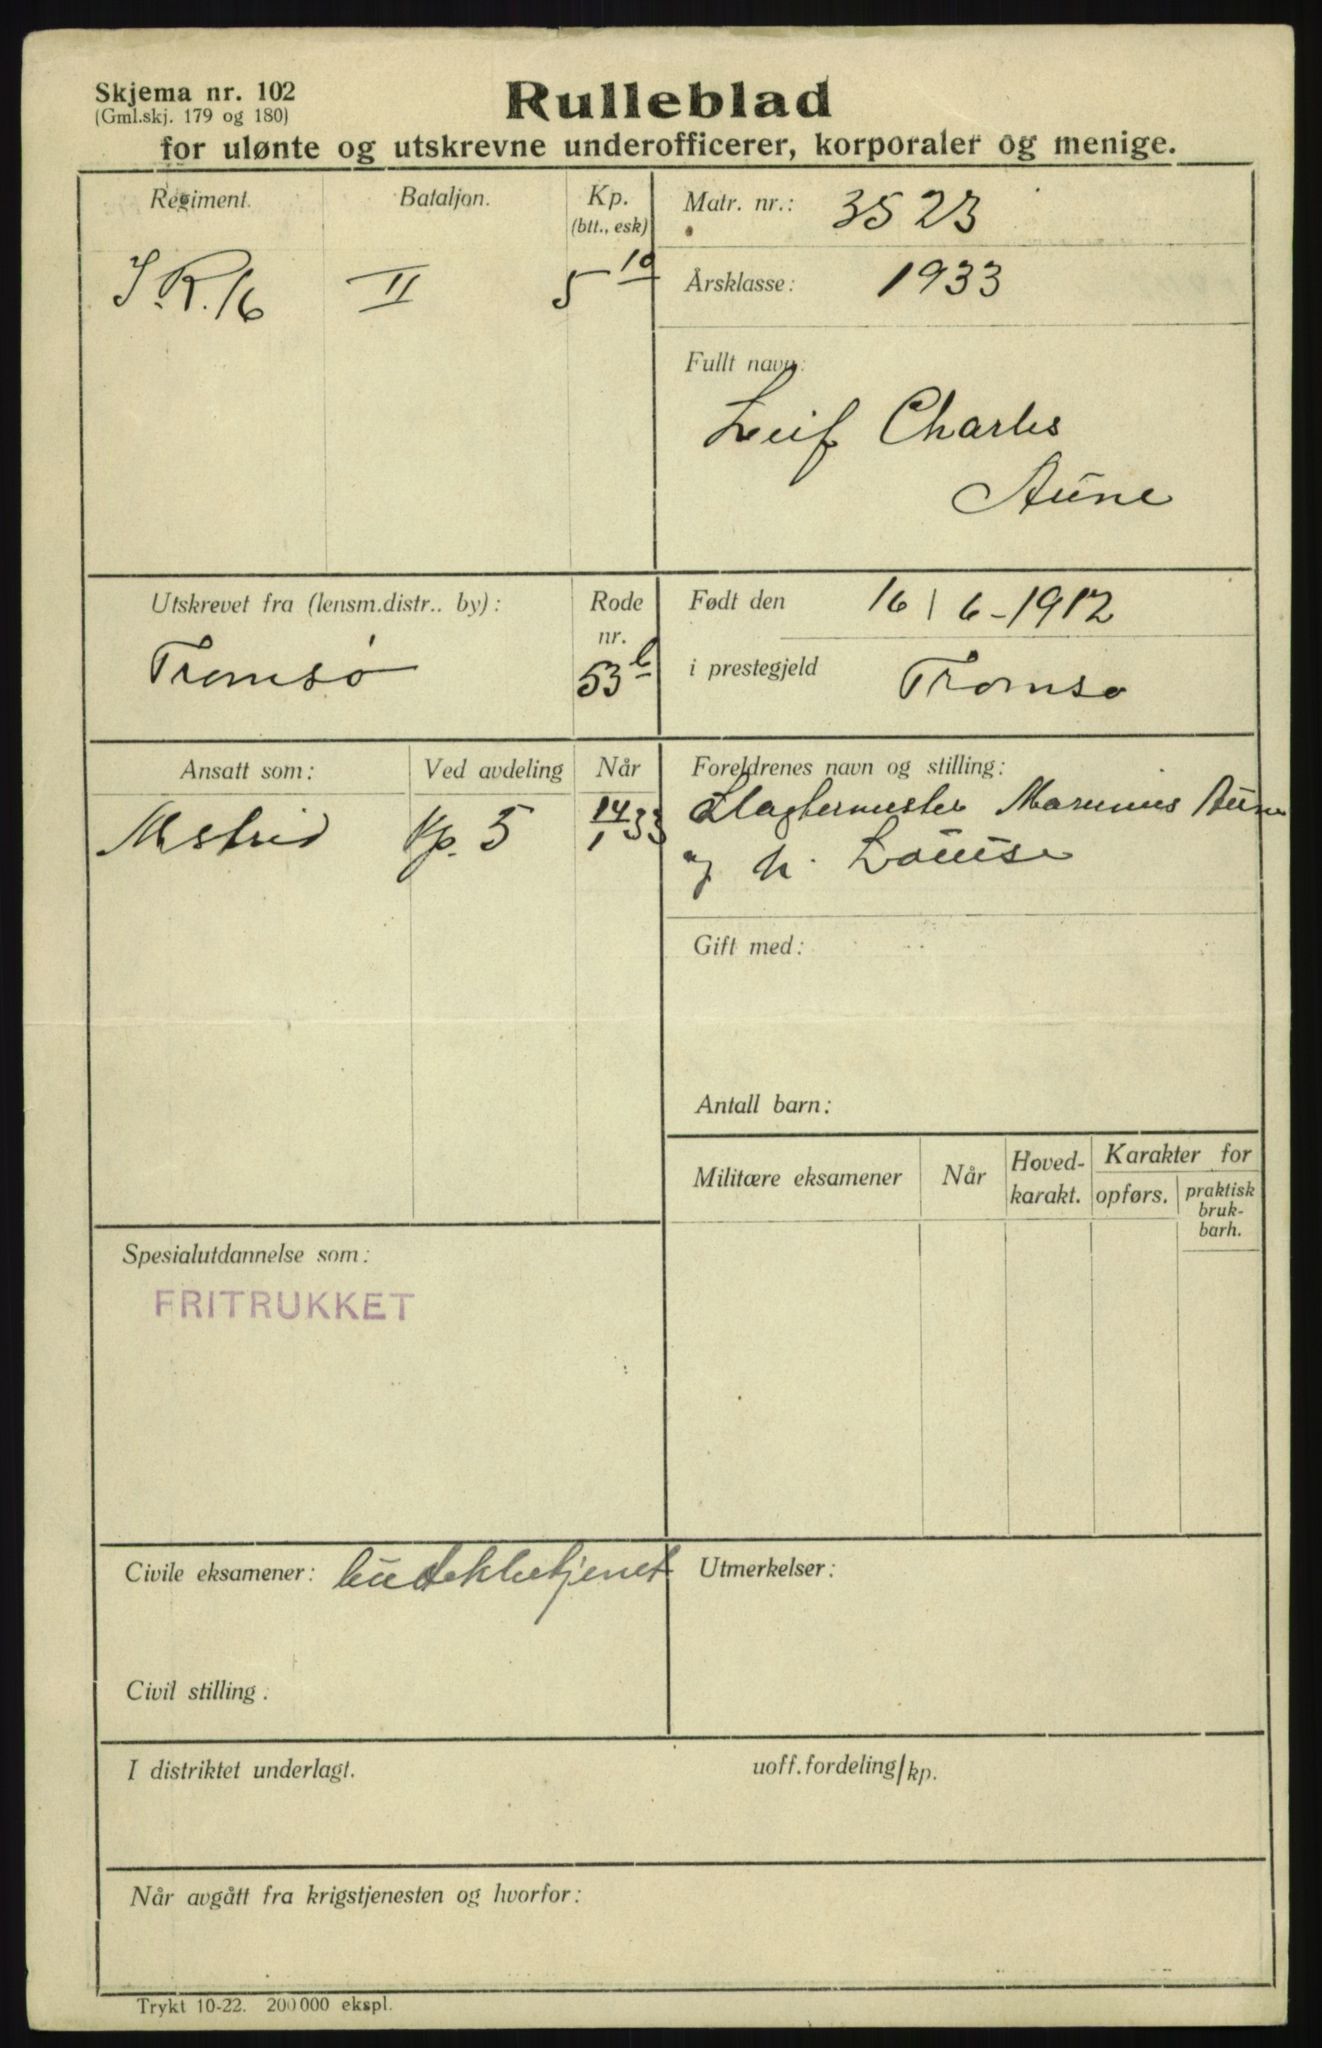 Skjema nr. 102
(Gml.skj. 179 og 180)
Rulleblad
for ulønte og utskrevne underofficerer, korporaler og menige.
Regiment.
Bataljon.
Kp.
(btt., esk)
I.R. 16
II
5 10
Matr. nr.: 3523
Årsklasse: 1933
Fullt navn:
Leif Charles
Aune
Utskrevet fra (lensm.distr.. by):
Tromsø
Rode
nr.
53 b
Født den 16/6-1912
i prestegjeld Tromsø
Ansatt som:
Ved avdeling
Når
Mstrid
Kp. 5
14/1 33
Foreldrenes navn og stilling:
Slagtermester Marinius Aune
og h. Louise
Gift med:
Antall barn:
Militære eksamener
Når
Hoved-
karakt.
Karakter for
opførs.
praktisk
bruk-
barh.
Spesialutdannelse som:
FRITRUKKET
Civile eksamener:
Utmerkelser:
Civil stilling.
I distriktet underlagt.
uoff. fordeling/kp.
Når avgått fra krigstjenesten og hvorfor:
Trykt 10-22. 200 000 ekspl.